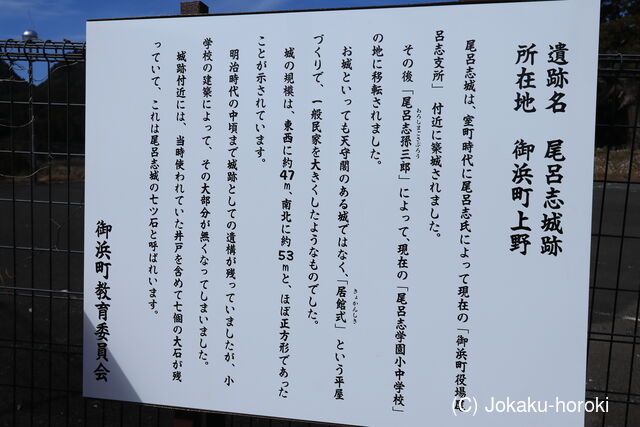 遺跡名　尾呂志城跡
所在地　御浜町上野
尾呂志城は、室町時代に尾呂志氏によって現在の「御浜町役場尾
呂志支所」付近に築城されました。
その後「尾呂志孫三郎」によって、現在の「尾呂志学園小中学校」
おろしまござぶろう
の地に移転されました。
お城といっても天守閣のある城ではなく、「居館式」という平屋
きょかんしき
づくりで、一般民家を大きくしたようなものでした。
城の規模は、東西に約47m、南北に約53mと、ほぼ正方形であった
ことが示されています。
明治時代の中頃まで城跡としての遺構が残っていましたが、小
学校の建築によって、その大部分が無くなってしまいました。
城跡付近には、当時使われていた井戸を含めて七個の大石が残
っていて、これは尾呂志城の七ツ石と呼ばれいます。
御浜町教育委員会
(C) Jokaku-horoki